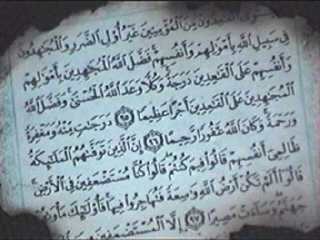 ٱلْقَٰعِدُونَ مِنَ ٱلْمُؤْمِنِينَ غَيْرُ أُو۟لِى ٱلضَّرَرِ وَٱلْمُجَٰهِدُونَ
فِى سَبِيلِ ٱللَّهِ بِأَمْوَٰلِهِمْ وَأَنفُسِهِمْ فَضَّلَ ٱللَّهُ ٱلْمُجَٰهِدِينَ بِأَمْوَٰلِهِمْ
وَأَنفُسِهِمْ عَلَى ٱلْقَٰعِدِينَ دَرَجَةً وَكُلًّا وَعَدَ ٱللَّهُ ٱلْحُسْنَىٰ وَفَضَّلَ ٱللَّهُ
ٱلْمُجَٰهِدِينَ عَلَى ٱلْقَٰعِدِينَ أَجْرًا عَظِيمًا ٩٥ دَرَجَٰتٍ مِّنْهُ وَمَغْفِرَةً
وَرَحْمَةً وَكَانَ ٱللَّهُ غَفُورًا رَّحِيمًا ٩٦ إِنَّ ٱلَّذِينَ تَوَفَّىٰهُمُ ٱلْمَلَٰٓئِكَةُ
ظَالِمِىٓ أَنفُسِهِمْ قَالُوا۟ فِيمَ كُنتُمْ قَالُوا۟ كُنَّا مُسْتَضْعَفِينَ فِى ٱلْأَرْضِ
قَالُوٓا۟ أَلَمْ تَكُنْ أَرْضُ ٱللَّهِ وَٰسِعَةً فَتُهَاجِرُوا۟ فِيهَا فَأُو۟لَٰٓئِكَ مَأْوَىٰهُمْ
جَهَنَّمُ وَسَآءَتْ مَصِيرًا ٩٧ إِلَّا ٱلْمُسْتَضْعَفِينَ